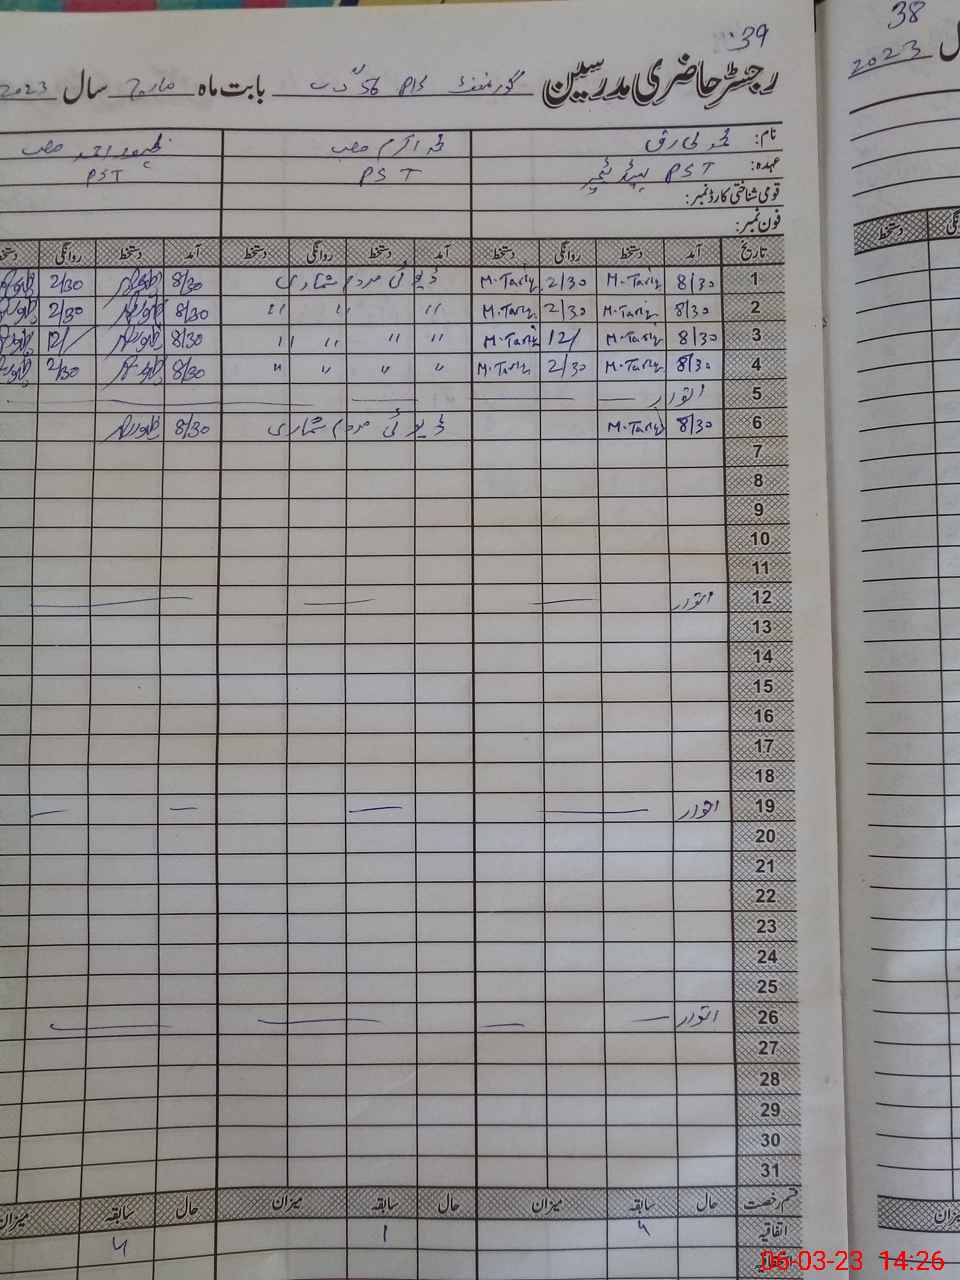 39
38
رجسٹر حاضری مدرسین گورنمنٹ P/S 56 ب بابت ماہ مارچ سال 2023
2023
نام: محمد طارق محمد اکرم صاحب ظہور احمد صاحب
عہدہ: PST ہیڈ ٹیچر PST PST
قومی شناختی کارڈ نمبر:
فون نمبر:
تاریخ آمد دستخط روانگی دستخط آمد دستخط روانگی دستخط آمد دستخط روانگی دستخط
دستخط
1 8/30 M.Tariq 2/30 M.Tariq ڈیوٹی مردم شماری 8/30 2/30
2 8/30 M.Tariq 2/30 M.Tariq " " " 8/30 2/30
3 8/30 M.Tariq 12/ M.Tariq " " " " 8/30 12/
4 8/30 M.Tariq 2/30 M.Tariq " " " " 8/30 2/30
5 اتوار
6 8/30 M.Tariq ڈیوٹی مردم شماری 8/30
7
8
9
10
11
12 اتوار
13
14
15
16
17
18
19 اتوار
20
21
22
23
24
25
26 اتوار
27
28
29
30
31
قسم رخصت حال سابقہ میزان حال سابقہ میزان حال سابقہ میزان
اتفاقیہ 1
06-03-23 14:26